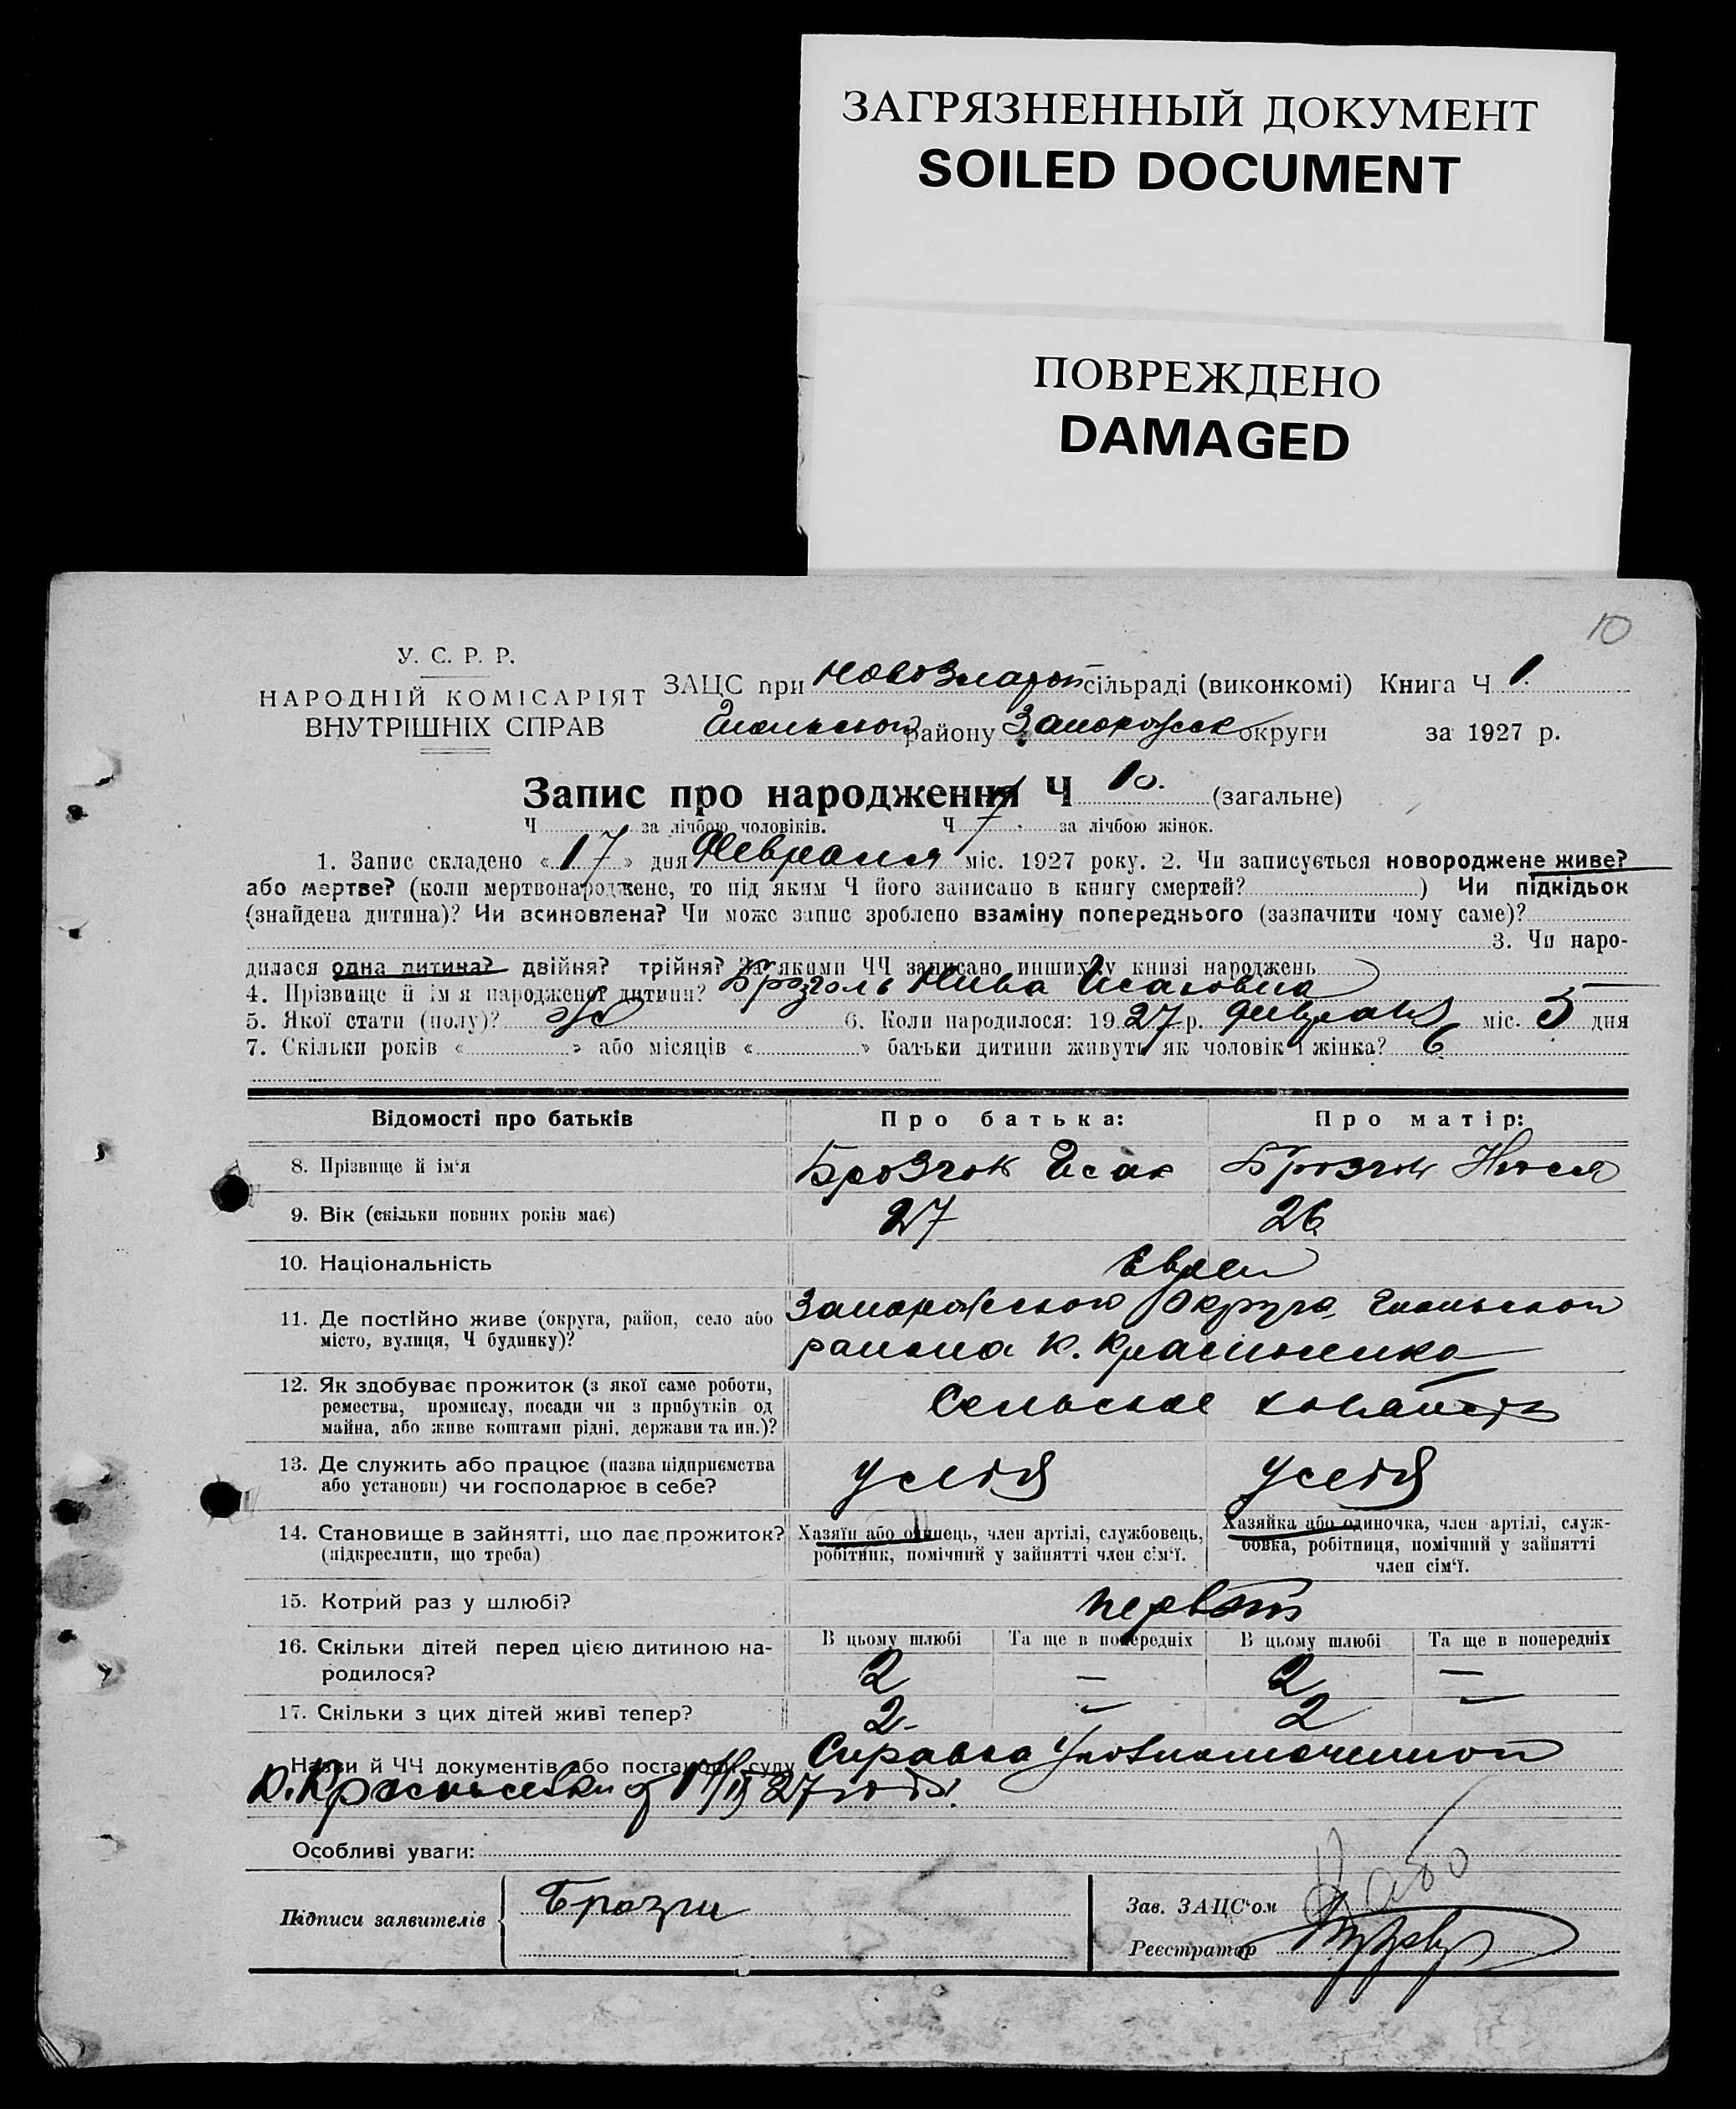 ЗАГРЯЗНЕННЫЙ ДОКУМЕНТ
SOILED DOCUMENT
ПОВРЕЖДЕНО
DAMAGED
10
У. С. Р. Р.
НАРОДНІЙ КОМІСАРІЯТ
ВНУТРІШНІХ СПРАВ
ЗАЦС при НовоЗлатоп сільраді (виконкомі) Книга Ч 1.
району Запорожск округи за 1927 р.
Запис про народження Ч 10. (загальне)
Ч за лічбою чоловіків. Ч 7 за лічбою жінок.
1. Запис складено « 17 » дня Февраля міс. 1927 року. 2. Чи записується новороджене живе?
або мертве? (коли мертвонароджене, то під яким Ч його записано в книгу смертей? ) Чи підкідьок
(знайдена дитина)? Чи всиновлена? Чи може запис зроблено взаміну попереднього (зазначити чому саме)?
3. Чи наро-
дилася одна дитина? двійня? трійня? За якими ЧЧ записано инших у книзі народжень
4. Прізвище й ім'я народженої дитини? Нива Исаковна
5. Якої стати (полу)? ж 6. Коли народилося: 1927 р. февраля міс. 5 дня
7. Скільки років « » або місяців « » батьки дитини живуть як чоловік і жінка? 6
Відомості про батьків Про батька: Про матір:
8. Прізвище й ім'я Брозгол Исак Брозгол
9. Вік (скільки повних років має) 27 26
10. Національність Евреи
11. Де постійно живе (округа, район, село або Запорожского Округа,
місто, вулиця, Ч будинку)? района К. Красноселка
12. Як здобуває прожиток (з якої саме роботи, Сельское
ремества, промислу, посади чи з прибутків од
майна, або живе коштами рідні, держави та ин.)?
13. Де служить або працює (назва підприємства у себя у себя
або установи) чи господарює в себе?
14. Становище в зайнятті, що дає прожиток? Хазяїн або одинець, член артілі, службовець, Хазяйка або одиночка, член артілі, служ-
(підкреслити, що треба) робітник, помічний у зайнятті член сім'ї. бовка, робітниця, помічний у зайнятті
член сім'ї.
15. Котрий раз у шлюбі? первый
16. Скільки дітей перед цією дитиною на- В цьому шлюбі Та ще в попередніх В цьому шлюбі Та ще в попередніх
родилося? 2 — 2 —
17. Скільки з цих дітей живі тепер? 2 — 2 —
Назви й ЧЧ документів або постанови суду Справка Уполномоченного
К. Красноселки 27 года.
Особливі уваги:
Підписи заявителів
Зав. ЗАЦС'ом
Реєстратор